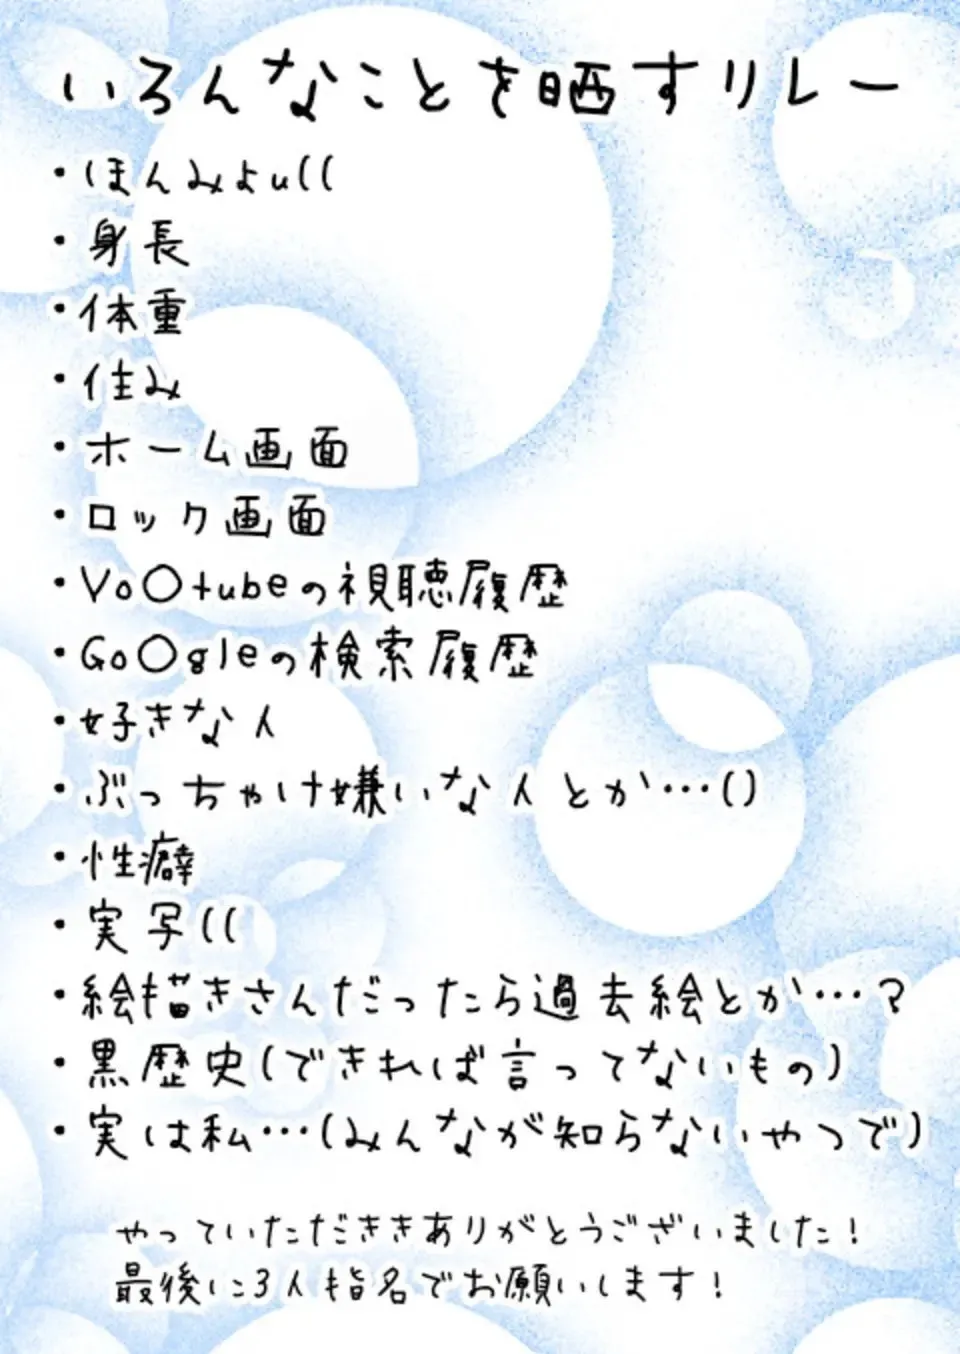 いろんなことを晒すリレー
・ほんみょu((
・身長
・体重
・住み
・ホーム画面
・ロック画面
・Yo〇tubeの視聴履歴
・Go〇gleの検索履歴
・好きな人
・ぶっちゃけ嫌いな人とか…()
・性癖
・実写((
・絵描きさんだったら過去絵とか…?
・黒歴史(できれば言ってないもの)
・実は私…(みんなが知らないやつで)
やっていただききありがとうございました!
最後に3人指名でお願いします!